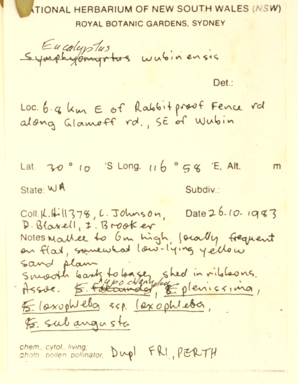 NATIONAL HERBARIUM OF NEW SOUTH WALES (NSW)
ROYAL BOTANIC GARDENS, SYDNEY
Eucalyptus
Symphyomyrtus wubinensis
Det.:
Loc. 6.8 km E of Rabbit proof Fence rd
along Glamoff rd., SE of Wubin
Lat. 30° 10 'S Long. 116° 58 'E, Alt. m
State: WA Subdiv.:
Coll. K. Hill 378, L. Johnson, Date 26.10.1983
D. Blaxell, I. Brooker
Notes Mallee to 6m high, locally frequent
on flat, somewhat low-lying yellow
sand plain
Smooth bark to base, shed in ribbons.
Assoc. E. plenissima,
E. loxophleba ssp. loxophleba,
E. subangusta
chem, cytol, living,
photo, pollen, pollinator, Dupl FRI, PERTH